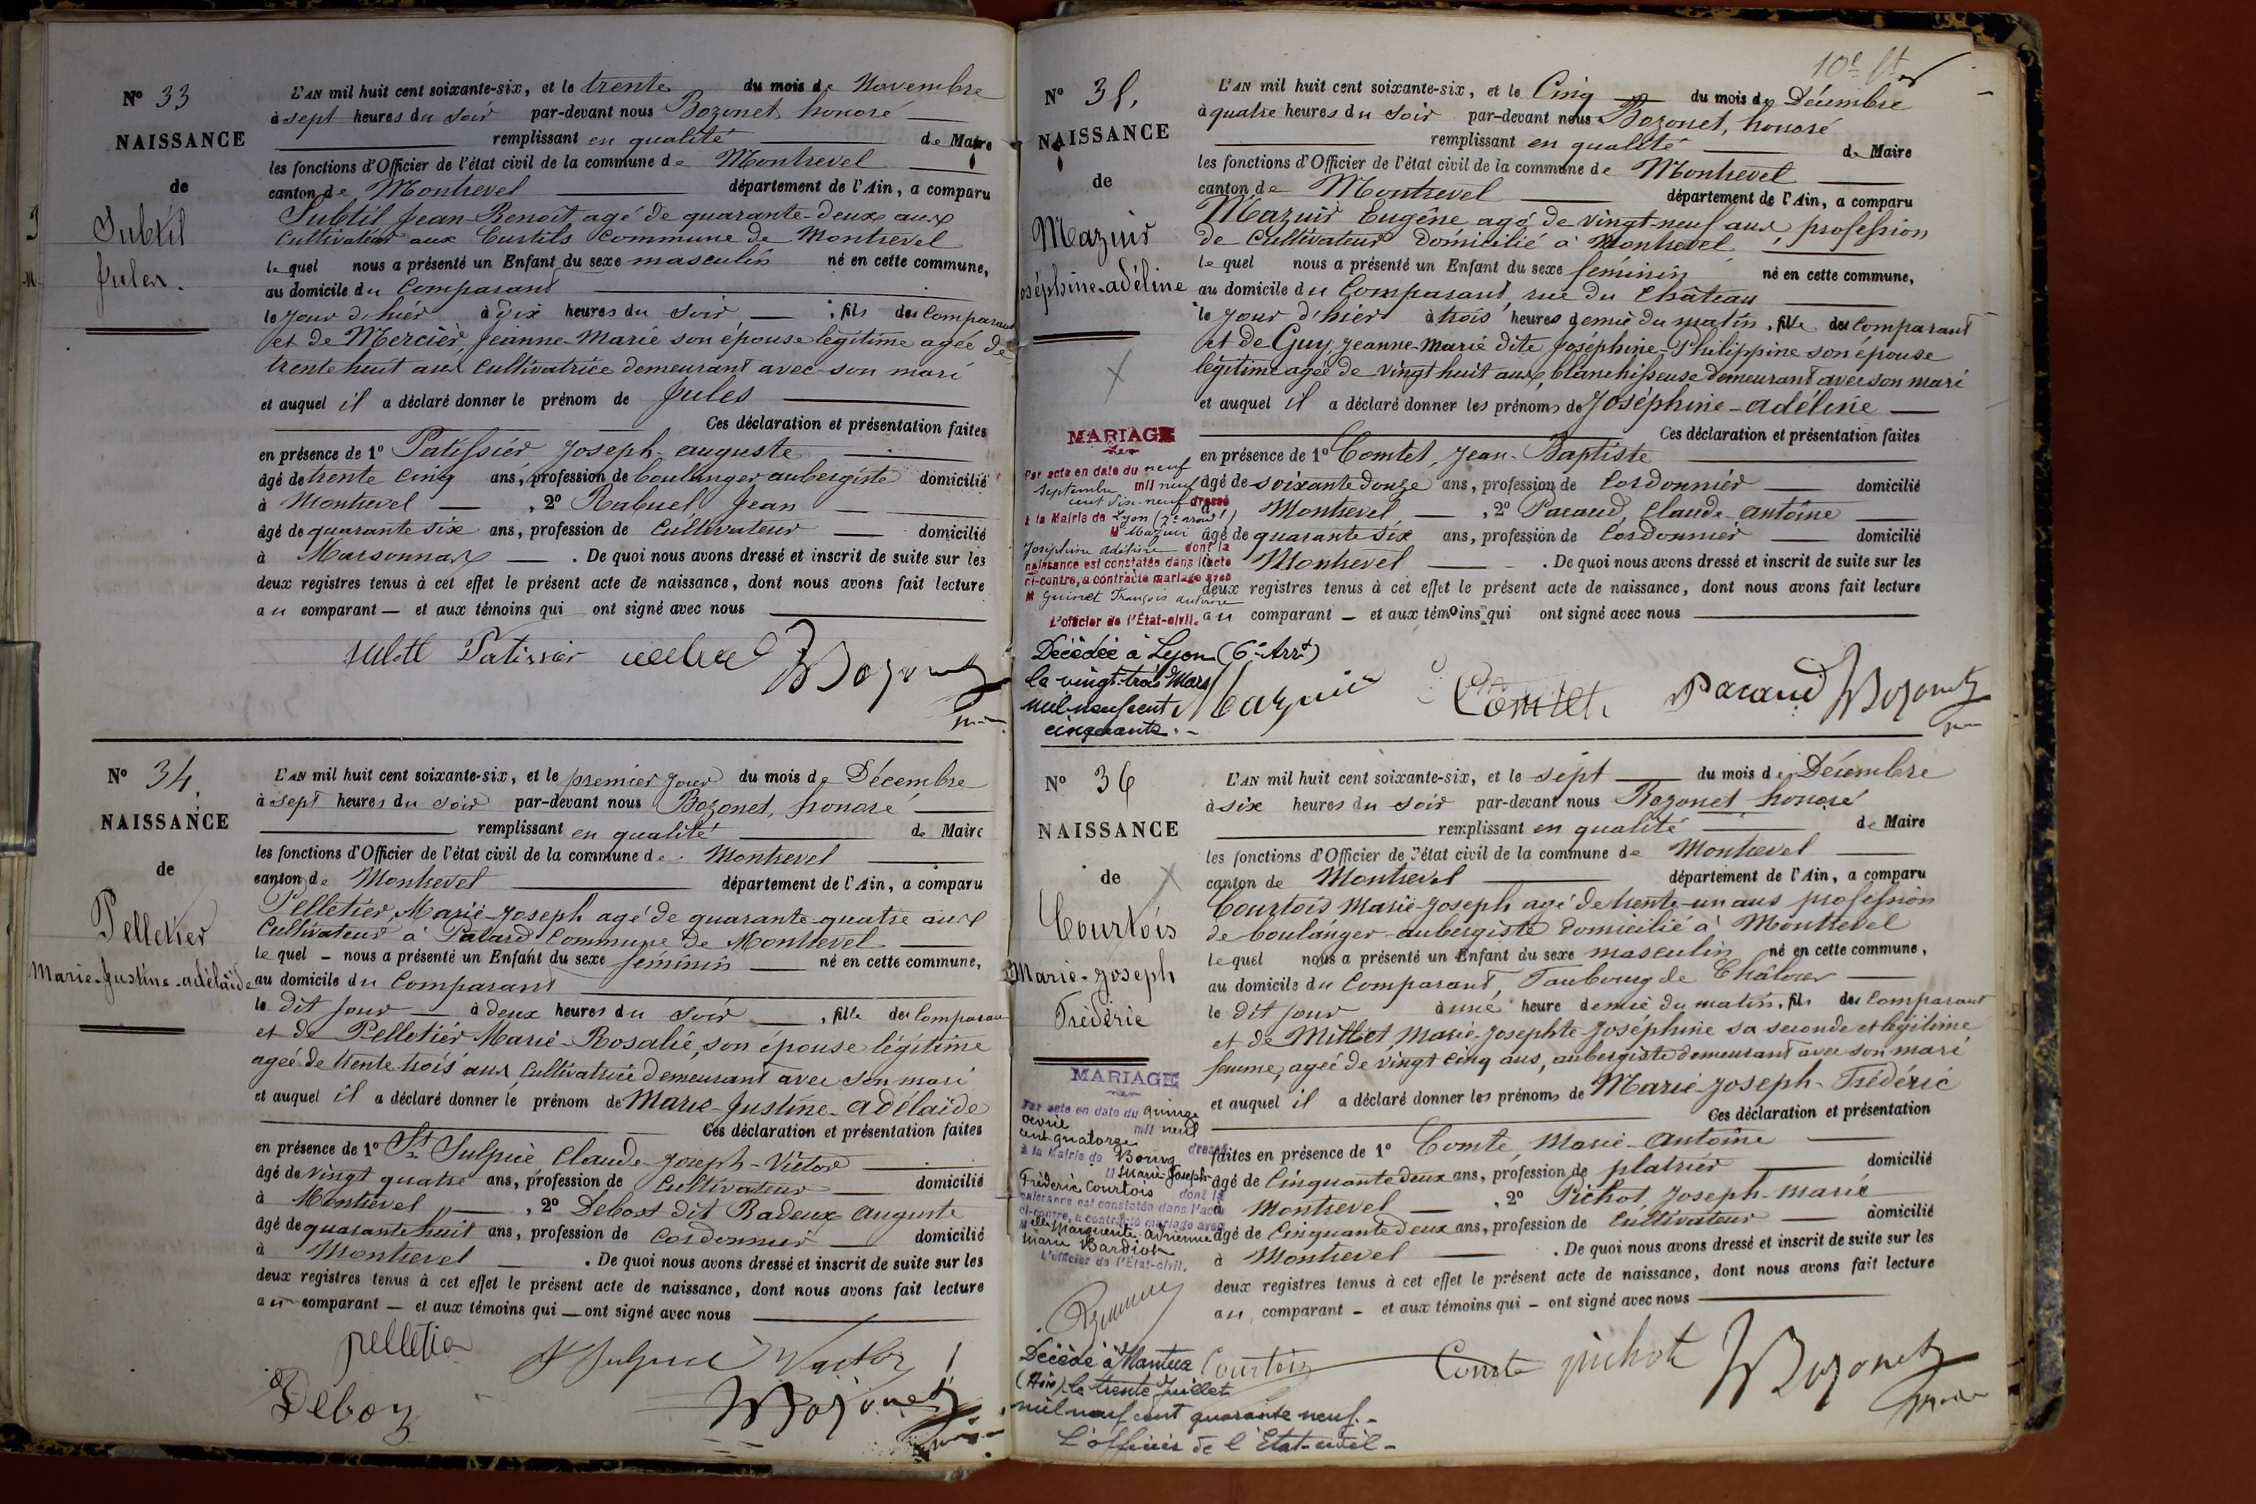 N° 33
NAISSANCE
de
Subtil
Jules.
L'AN mil huit cent soixante-six, et le trente du mois de Novembre
à sept heures du soir par-devant nous Bozonet, honoré
remplissant en qualité de Maire
les fonctions d'Officier de l'état civil de la commune de Montrevel
canton de Montrevel département de l'Ain, a comparu
Subtil Jean-Benoit, agé de quarante-deux aux
Cultivateur aux Curtils Commune de Montrevel
lequel nous a présenté un Enfant du sexe masculin né en cette commune,
au domicile du Comparant
le jour d'hier à dix heures du soir, fils du Comparant
et de Mercier, Jeanne-Marie son épouse légitime agée de
trente huit aux Cultivatrice demeurant avec son mari
et auquel il a déclaré donner le prénom de Jules
Ces déclaration et présentation faites
en présence de 1° Patissier Joseph-auguste
âgé de trente cinq ans, profession de boulanger aubergiste domicilié
à Montrevel, 2° Rabuel Jean
âgé de quarante six ans, profession de Cultivateur domicilié
à Marsonnax. De quoi nous avons dressé et inscrit de suite sur les
deux registres tenus à cet effet le présent acte de naissance, dont nous avons fait lecture
au comparant — et aux témoins qui ont signé avec nous
Patissier Bozonet
N° 34.
NAISSANCE
de
Pelletier
Marie-Justine-adélaïde
L'AN mil huit cent soixante-six, et le premier jour du mois de Décembre
à sept heures du soir par-devant nous Bozonet, honoré
remplissant en qualité de Maire
les fonctions d'Officier de l'état civil de la commune de Montrevel
canton de Montrevel département de l'Ain, a comparu
Pelletier, Marie-Joseph agé de quarante-quatre aux
Cultivateur à Salard Commune de Montrevel
lequel – nous a présenté un Enfant du sexe féminin né en cette commune,
au domicile du Comparant
le dit jour à deux heures du soir, fille du Comparant
et de Pelletier Marie-Rosalie, son épouse légitime
agée de trente trois aux Cultivatrice demeurant avec son mari
et auquel il a déclaré donner le prénom de Marie-Justine-adélaïde
Ces déclaration et présentation faites
en présence de 1° St Sulpice Claude-Joseph-Victor
âgé de vingt quatre ans, profession de Cultivateur domicilié
à Montrevel, 2° Debost dit Badeux auguste
âgé de quarante huit ans, profession de Cordonnier domicilié
à Montrevel. De quoi nous avons dressé et inscrit de suite sur les
deux registres tenus à cet effet le présent acte de naissance, dont nous avons fait lecture
au comparant — et aux témoins qui — ont signé avec nous
pelletier St Sulpice Victor
Bozonet
N° 35.
NAISSANCE
de
Mazuir
Joséphine-adéline
L'AN mil huit cent soixante-six, et le Cinq du mois de Décembre
à quatre heures du soir par-devant nous Bozonet, honoré
remplissant en qualité de Maire
les fonctions d'Officier de l'état civil de la commune de Montrevel
canton de Montrevel département de l'Ain, a comparu
Mazuir Eugène agé de vingt-neuf aux, profession
de Cultivateur domicilié à Montrevel
lequel nous a présenté un Enfant du sexe féminin né en cette commune,
au domicile du Comparant, rue du Château
le jour d'hier à trois heures demie du matin, fille du Comparant
et de Guy, Jeanne-Marie dite Joséphine-Philippine son épouse
légitime agée de vingt huit aux, blanchisseuse demeurant avec son mari
et auquel il a déclaré donner les prénoms de Joséphine-adéline
Ces déclaration et présentation faites
en présence de 1° Comtet, Jean-Baptiste
âgé de soixante douze ans, profession de Cordonnier domicilié
à Montrevel, 2° Pacaud, Claude-antoine
âgé de quarante six ans, profession de Cordonnier domicilié
à Montrevel. De quoi nous avons dressé et inscrit de suite sur les
deux registres tenus à cet effet le présent acte de naissance, dont nous avons fait lecture
au comparant — et aux témoins qui ont signé avec nous
MARIAGE
Par acte en date du neuf
septembre mil neuf
cent dix-neuf dressé
à la Mairie de Lyon (7e arrondt)
M Mazuir
Joséphine Adéline dont la
naissance est constatée dans l'acte
ci-contre, a contracté mariage avec
M Guinet François antoine
L'officier de l'État-civil.
Décédée à Lyon (6e Arrt)
le vingt-trois Mars
mil neuf cent
cinquante.
Mazuir Comtet Pacaud Bozonet
N° 36
NAISSANCE
de
Courtois
Marie-Joseph
Frédéric
L'AN mil huit cent soixante-six, et le sept du mois de Décembre
à six heures du soir par-devant nous Bozonet honoré
remplissant en qualité de Maire
les fonctions d'Officier de l'état civil de la commune de Montrevel
canton de Montrevel département de l'Ain, a comparu
Courtois Marie-Joseph agé de trente-un aus profession
de boulanger-aubergiste domicilié à Montrevel
lequel nous a présenté un Enfant du sexe masculin né en cette commune,
au domicile du Comparant, Faubourg de Châlon
le dit jour à une heure demie du matin, fils du Comparant
et de Milliet Marie-Josephte-Joséphine sa seconde et légitime
femme, agée de vingt cinq aus, aubergiste demeurant avec son mari
et auquel il a déclaré donner les prénoms de Marie-Joseph-Frédéric
Ces déclaration et présentation
faites en présence de 1° Comte, Marie-Antoine
âgé de Cinquante deux ans, profession de platrier domicilié
à Montrevel, 2° Pichot, Joseph-marie
âgé de Cinquante deux ans, profession de Cultivateur domicilié
à Montrevel. De quoi nous avons dressé et inscrit de suite sur les
deux registres tenus à cet effet le présent acte de naissance, dont nous avons fait lecture
au comparant – et aux témoins qui – ont signé avec nous
MARIAGE
Par acte en date du quinze
avril mil neuf
cent quatorze dressé
à la Mairie de Bourg
M Marie-Joseph-
Frédéric Courtois dont la
naissance est constatée dans l'acte
ci-contre, a contracté mariage avec
Melle Marguerite-Adrienne
Marie Bardiot
L'officier de l'État-civil.
Décédé à Nantua
(Ain) le trente Juillet
mil neuf cent quarante neuf.
L'officier de l'Etat-civil
Courtois Comte pichot Bozonet